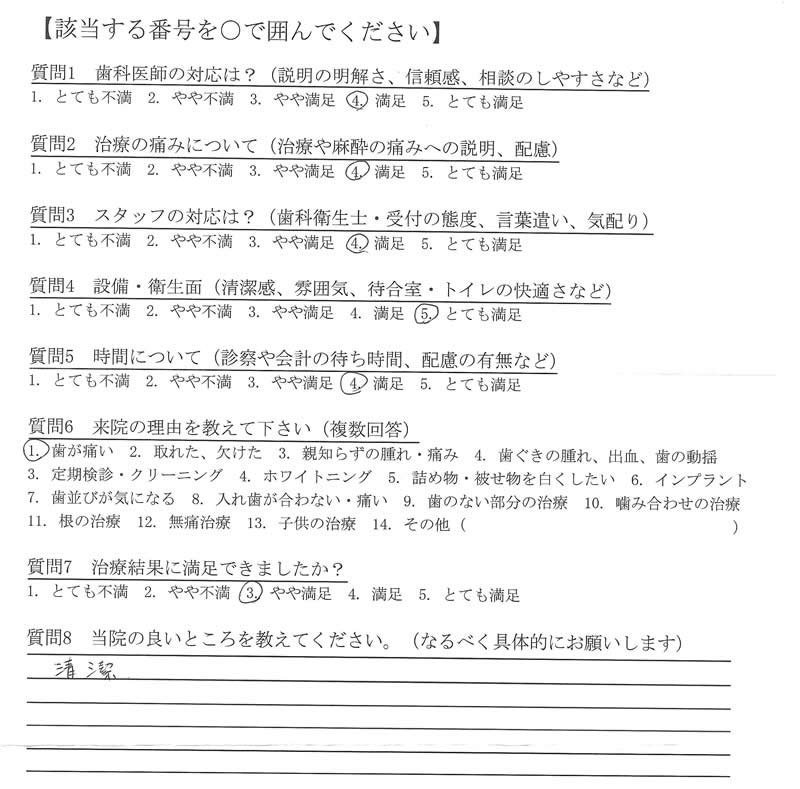 【該当する番号を〇で囲んでください】
質問1　歯科医師の対応は？（説明の明解さ、信頼感、相談のしやすさなど）
1. とても不満　2. やや不満　3. やや満足　4. 満足　5. とても満足
質問2　治療の痛みについて（治療や麻酔の痛みへの説明、配慮）
1. とても不満　2. やや不満　3. やや満足　4. 満足　5. とても満足
質問3　スタッフの対応は？（歯科衛生士・受付の態度、言葉遣い、気配り）
1. とても不満　2. やや不満　3. やや満足　4. 満足　5. とても満足
質問4　設備・衛生面（清潔感、雰囲気、待合室・トイレの快適さなど）
1. とても不満　2. やや不満　3. やや満足　4. 満足　5. とても満足
質問5　時間について（診察や会計の待ち時間、配慮の有無など）
1. とても不満　2. やや不満　3. やや満足　4. 満足　5. とても満足
質問6　来院の理由を教えて下さい（複数回答）
1. 歯が痛い　2. 取れた、欠けた　3. 親知らずの腫れ・痛み　4. 歯ぐきの腫れ、出血、歯の動揺
3. 定期検診・クリーニング　4. ホワイトニング　5. 詰め物・被せ物を白くしたい　6. インプラント
7. 歯並びが気になる　8. 入れ歯が合わない・痛い　9. 歯のない部分の治療　10. 噛み合わせの治療
11. 根の治療　12. 無痛治療　13. 子供の治療　14. その他（　　　　　　　　　　　　　　　）
質問7　治療結果に満足できましたか？
1. とても不満　2. やや不満　3. やや満足　4. 満足　5. とても満足
質問8　当院の良いところを教えてください。（なるべく具体的にお願いします）
清潔